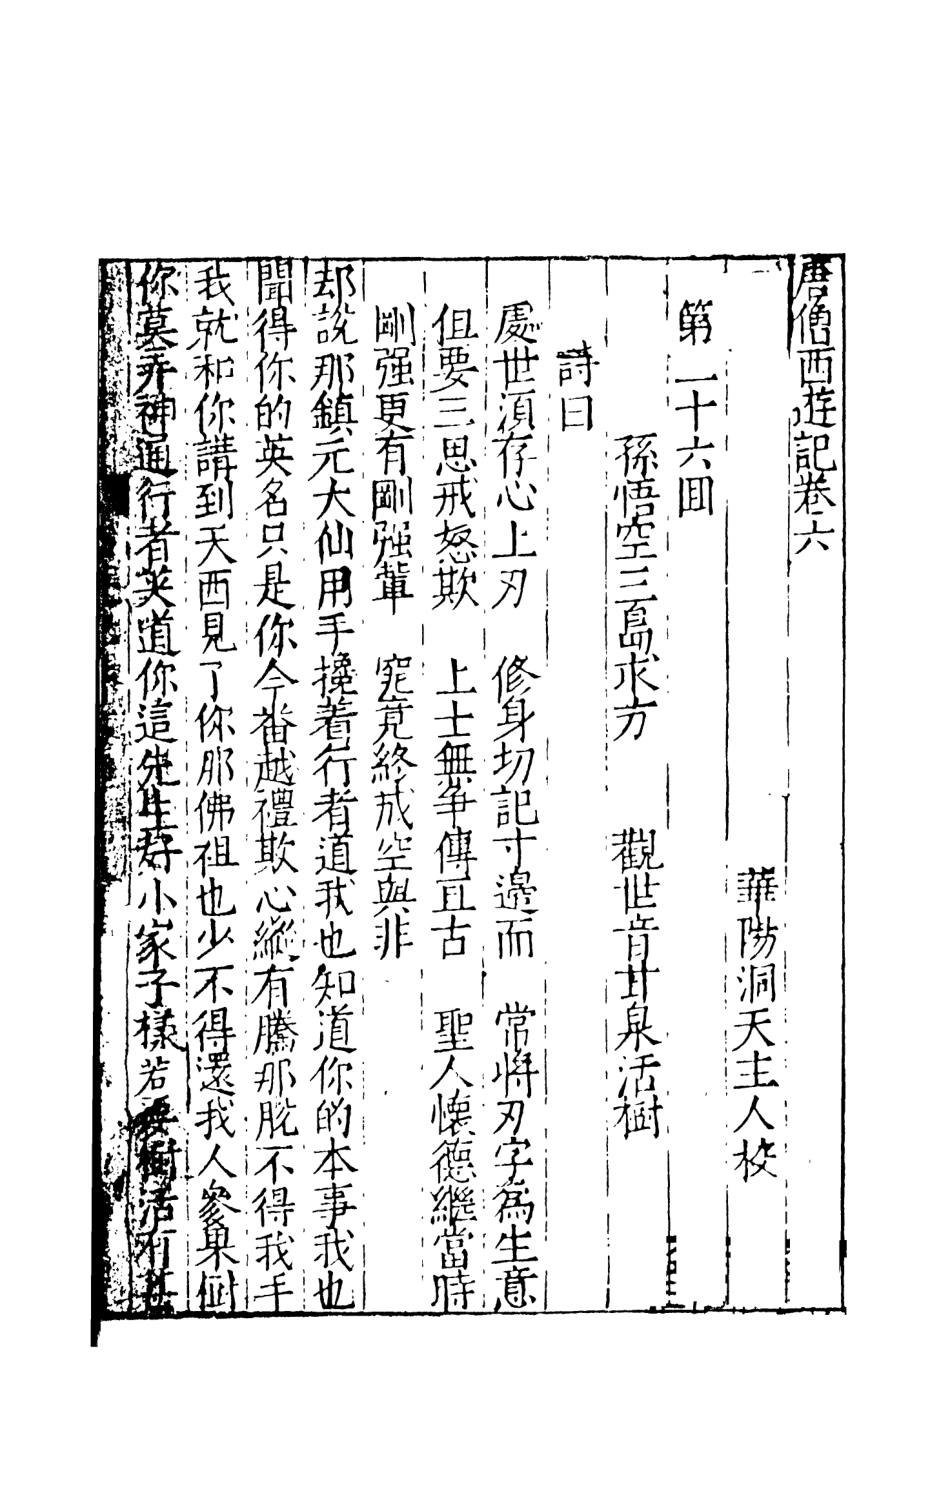 唐僧西遊記卷六
華陽洞天主人校
第二十六回
孫悟空三島求方 觀世音甘泉活樹
詩曰
處世須存心上刃 修身切記寸邊而 常將刃字爲生意
但要三思戒怒欺 上士無争傳亙古 聖人懷德繼當時
剛强更有剛强輩 究竟終成空與非
却說那鎮元大仙用手攙着行者道我也知道你的本事我也
聞得你的英名只是你今番越禮欺心縱有騰那脫不得我手
我就和你講到天西見了你那佛祖也少不得還我人參果樹
你莫弄神通行者笑道你這先生好小家子樣若要樹活有甚